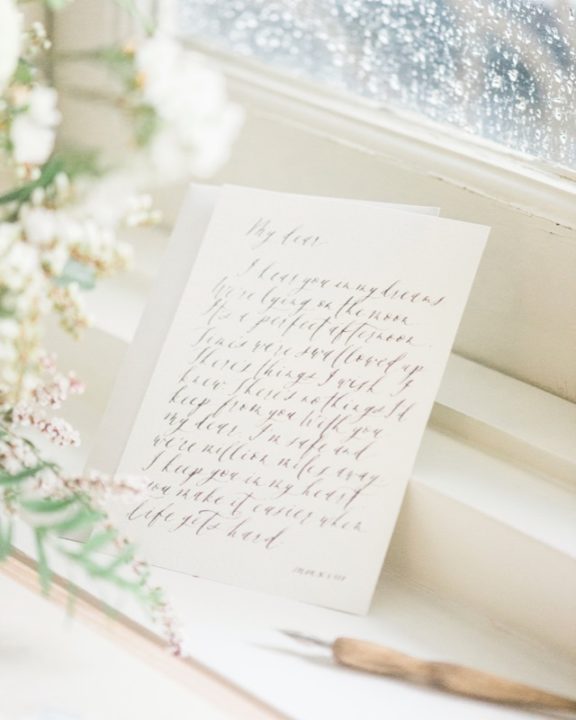 My dear,
I hear you in my dreams
We're lying on the moon
It's a perfect afternoon
were swallowed up
There's things I wish I
knew There's no things I'd
keep from you With you
my dear, I'm safe and
we're million miles away
I keep you in my heart
you make it easier when
life gets hard